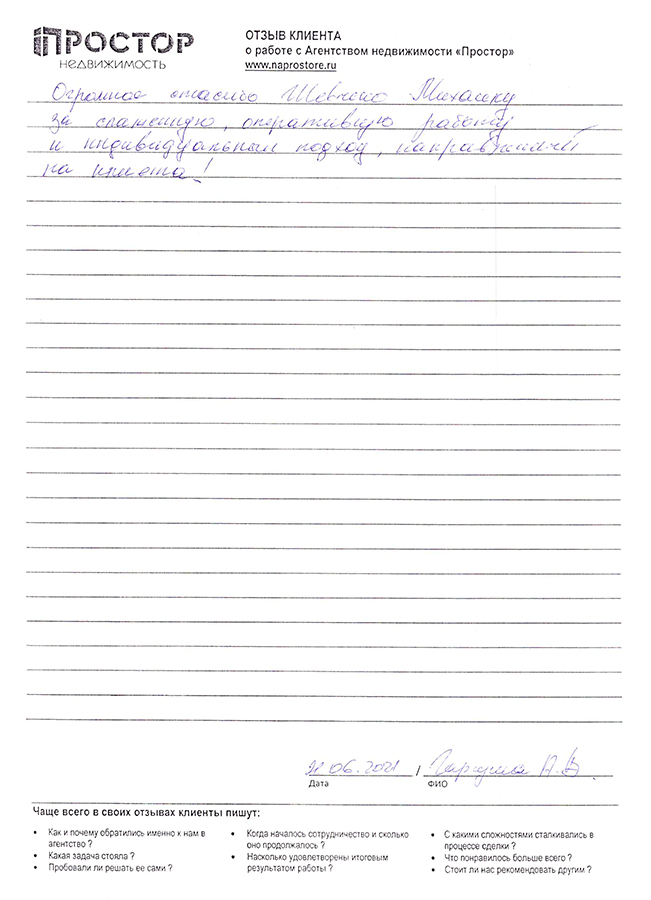 ПРОСТОР
НЕДВИЖИМОСТЬ
ОТЗЫВ КЛИЕНТА
о работе с Агентством недвижимости «Простор»
www.naprostore.ru
Огромное спасибо Шевченко Михаилу
за слаженную, оперативную работу
и индивидуальный подход, направленный
на клиента!
21.06.2021 /
Дата
ФИО
Чаще всего в своих отзывах клиенты пишут:
• Как и почему обратились именно к нам в
агентство ?
• Какая задача стояла ?
• Пробовали ли решать ее сами ?
• Когда началось сотрудничество и сколько
оно продолжалось ?
• Насколько удовлетворены итоговым
результатом работы ?
• С какими сложностями сталкивались в
процессе сделки ?
• Что понравилось больше всего ?
• Стоит ли нас рекомендовать другим ?